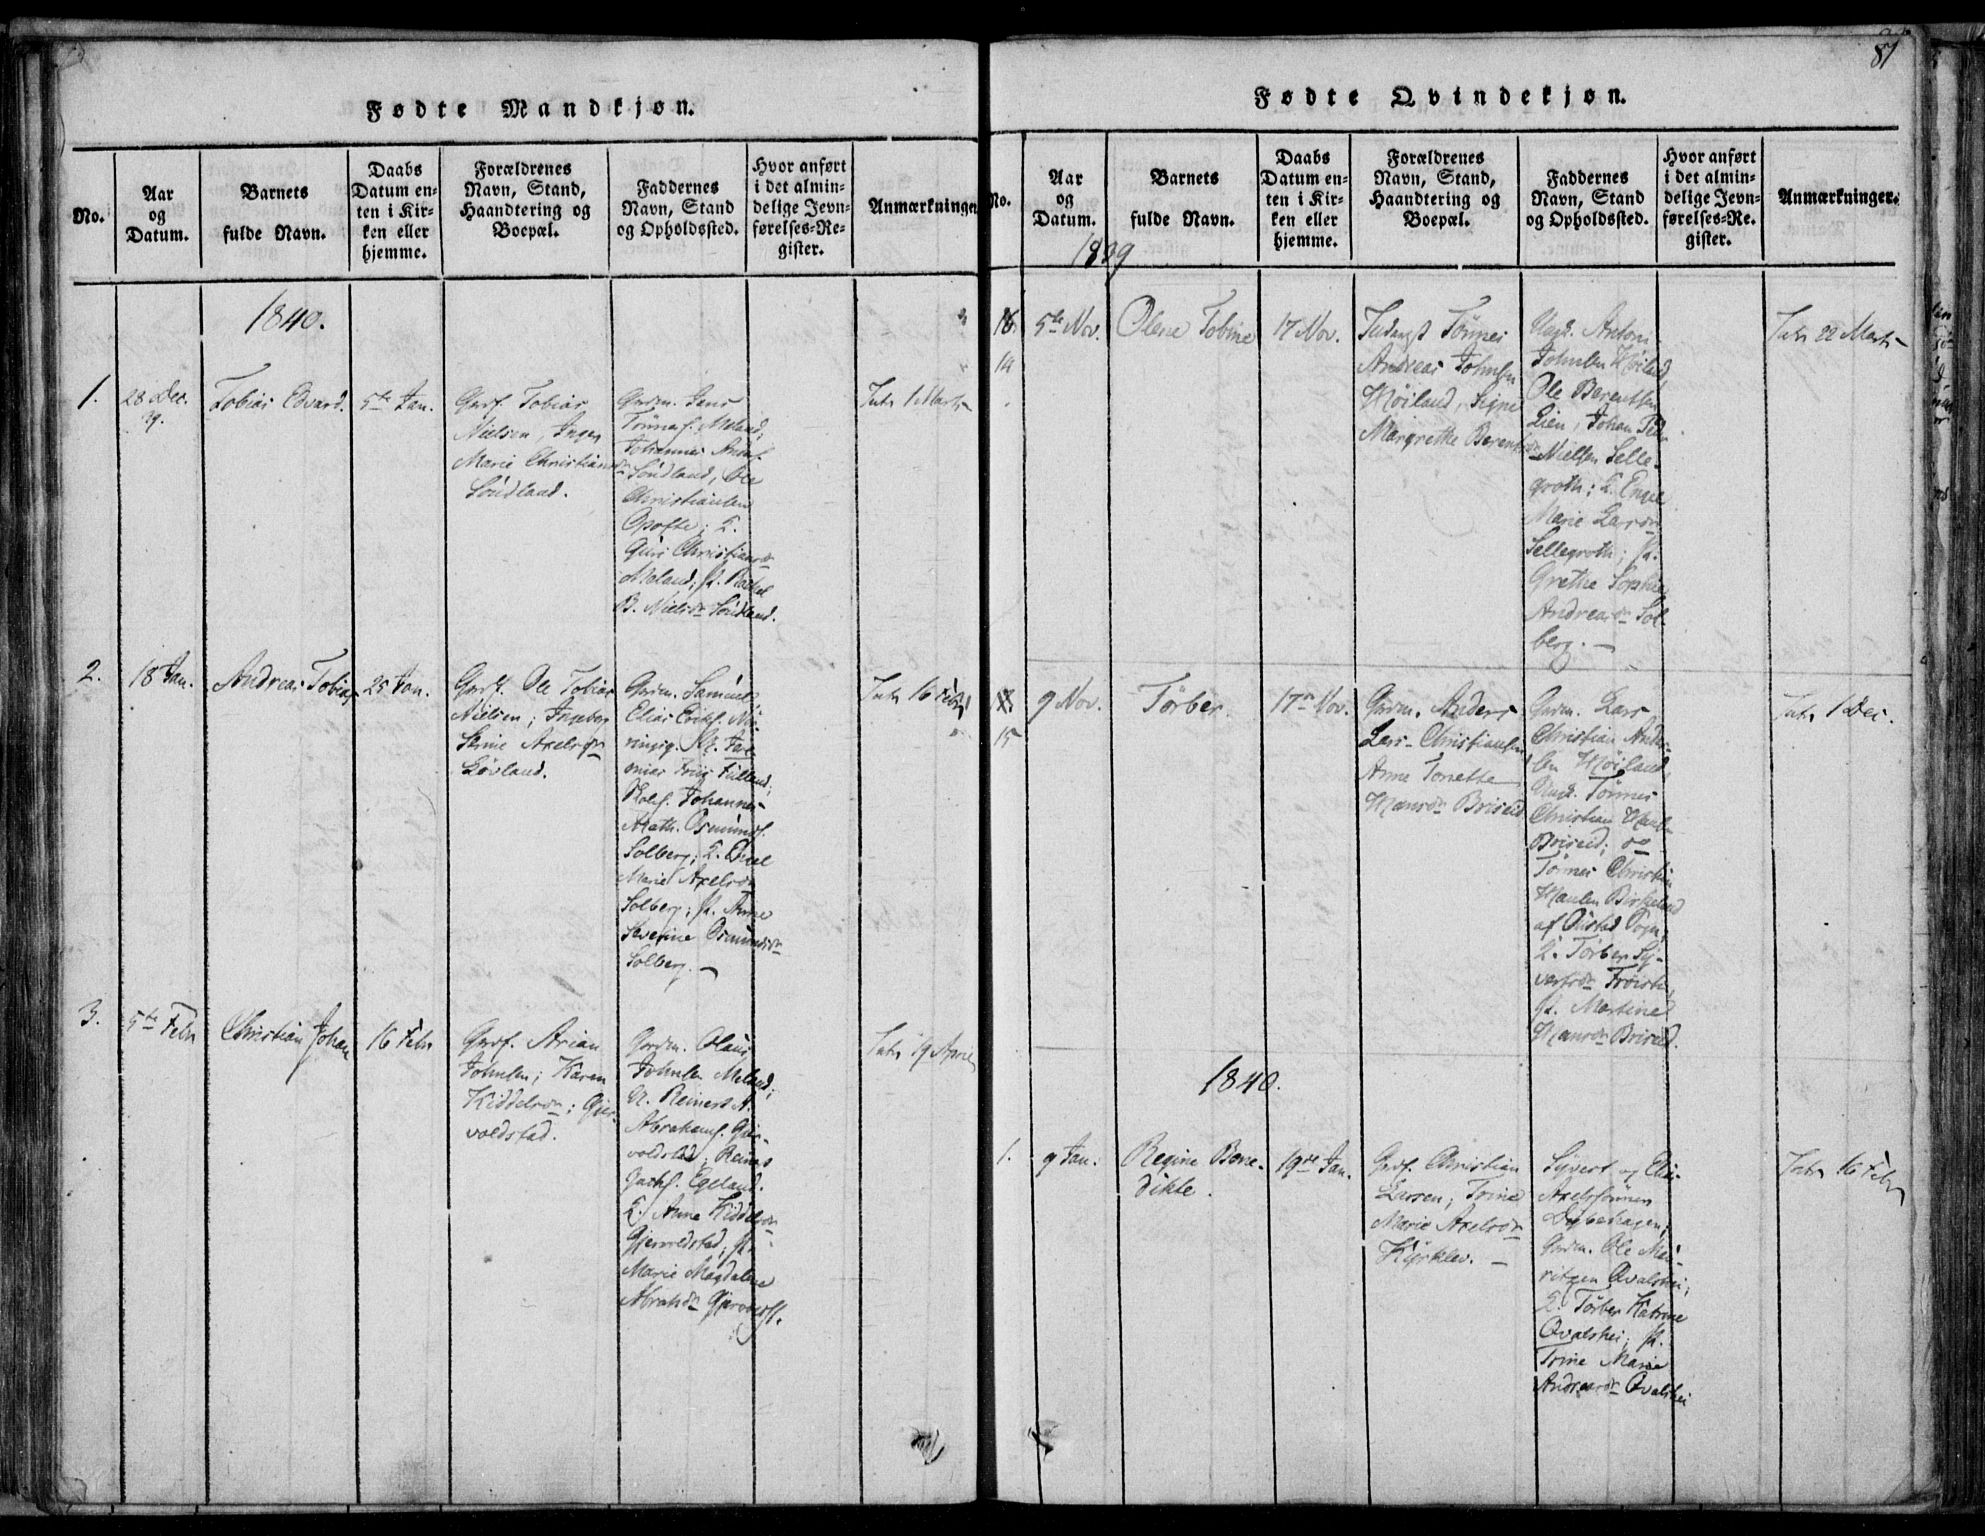 Fødte Mandkjøn.
No.
Aar
og
Datum.
Barnets
fulde Navn.
Daabs
Datum en-
ten i Kir-
ken eller
hjemme.
Forældrenes
Navn, Stand,
Haandtering og
Boepæl.
Faddernes
Navn, Stand
og Opholdssted.
Hvor anført
i det almin-
delige Jevn-
førelses-Re-
gister.
Anmærkninger
1840.
1.
28 Dec.
39.
Tobias Edvard.
5te Jan.
Gaff. Tobias
Nielsen, Inger
Marie Christians
Søudland.
Gaardm. Jens
Tønnes. Meland;
Johannes
Søudland, Ole
Christiansen
Opofte; T.
Guri Christiansdr
Meland; P. Rachel
B. Nielsdr Søudland.
Intr 1 Marts
2.
18 Jan.
Andreas Tobias
25 Jan.
Ole Tobias
Nielsen; Ingeborg
Serine Axelsdr
Løvland.
Gaardm. Samuel
Elias Eriks.
Tulland;
Johannes
Math. Osmunds.
Solberg; T.
Marie Axelsdr
Solberg; P. Anne
Severine Osmundsdr
Solberg. —
Intr 16 Febr
3.
5te Febr
Christian Johan
16 Febr
Arian
Johnsen; Karen
Kiddelsdr; Gjer-
voldstad.
Gaardm. Olaus
Johnsen Meland;
U. Reinert A.
Abrahams. Gjer-
voldstad; Reinert
Egeland.
T. Anne Kiddelsdr
Gjervoldstad; P.
Marie Magdalene
Abrahdr
Intr 19 April
87
Fødte Qvindekjøn.
No.
Aar
og
Datum.
Barnets
fulde Navn.
Daabs
Datum en-
ten i Kir-
ken eller
hjemme.
Forældrenes
Navn, Stand,
Haandtering og
Boepæl.
Faddernes
Navn, Stand
og Opholdssted.
Hvor anført
i det almin-
delige Jevn-
førelses-Re-
gister.
Anmærkninger.
1839
16
14
5te Nov.
Olene Tobine
17 Nov.
Tønnes
Andreas Johnsen
Høiland, Signe
Margrethe Berentsdr
Ungk. Anton
Johnsen Høiland,
Ole Berentsen
Lien, Johan Peder
Nielsen Selle-
groth; T. Engel
Marie Larsdr
Sellegroth; P.
Grethe Sophie
Andreasdr Sol-
berg. —
Intr 22 Marts
15
9 Nov.
Tørber.
17de Nov.
Gaardm. Anders
Lars Christiansen
Anne Tonette
Hansdr Briseid
Gaardm. Lars
Christian Ander-
sen Høiland,
Ungk. Tønnes
Christian Hansen
Briseid; og
Tønnes Christian
Hansen Birkeland
af Øustad Sogn,
T. Tørber Sy-
vertsdr Frøisti
P. Martine
Hansdr Briseid.
Intr 1 Dec.
1840.
1.
9 Jan.
Regine Bene-
dikte.
19de Jan.
Christian
Larsen; Trine
Marie Axelsdr
Kirklev. —
Syvert og Elias
Axelssønner
Dybeshagen;
Gaardm. Ole Mau-
ritzen Qvalshei;
T. Tørber Katrine
Qvalshei; P.
Trine Marie
Andreasdr Qvalshei
Intr 16 Febr